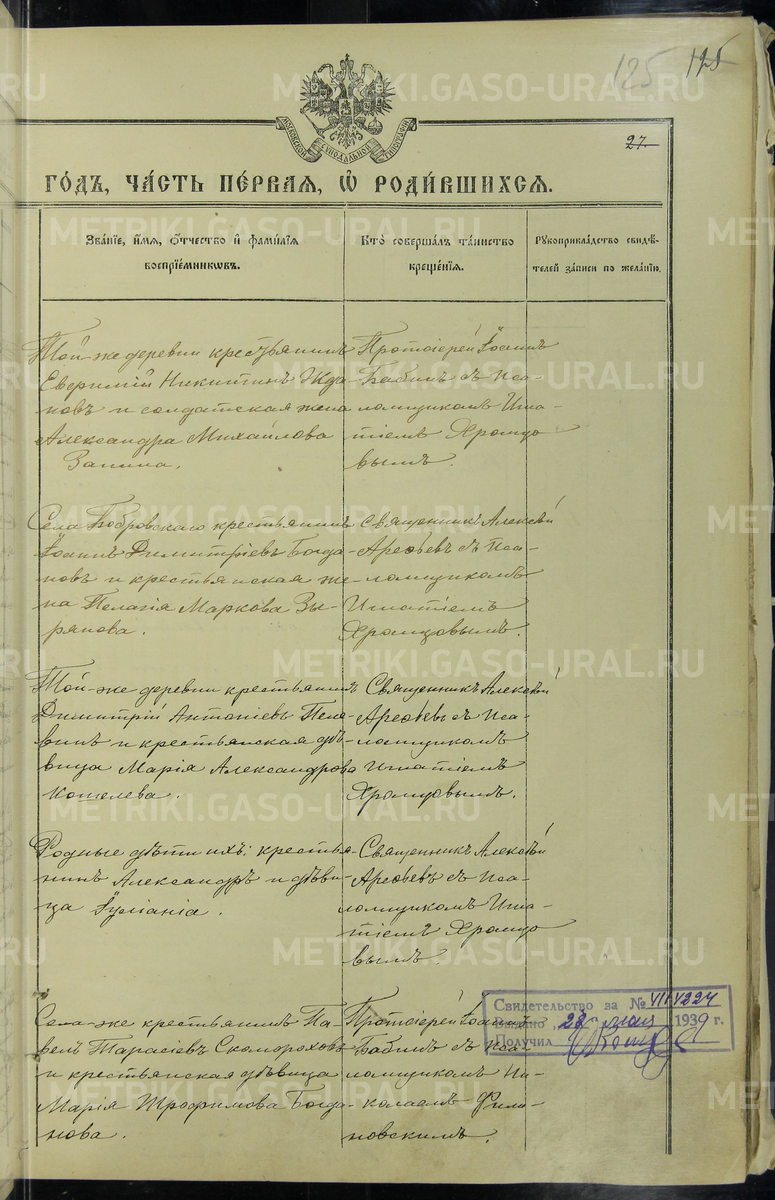 125
125
27.
МОСКОВСКОЙ СѴНОДАЛЬНОЙ ТИПОГРАФІИ
ГО́ДЪ, ЧА́СТЬ ПЕ́РВАЯ, Ѡ҆ РОДИ́ВШИХСЯ.
Зва́нїе, и҆́мя, ѻ҆́тчество и҆ фами́лїя воспрїе́мникѡвъ.
Кто̀ соверша́лъ та́инство креще́нїя.
Рꙋкоприкла́дство свидѣ́телей за́писи по жела́нїю.
Той-же деревни крестьянинъ
Евфимій Никитинъ Жда-
новъ и солдатская жена
Александра Михайлова
Зѣпина.
Протоіерей Іоаннъ
Бабинъ съ пса-
ломщикомъ Игна-
тіемъ Хромцо-
вымъ.
Села Бобровскаго крестьянинъ
Іоаннъ Димитріевъ Богда-
новъ и крестьянская же-
на Пелагія Маркова Зы-
рянова.
Священникъ Алексѣй
Арефьевъ съ пса-
ломщикомъ
Игнатіемъ
Хромцовымъ.
Той-же деревни крестьянинъ
Димитрій Антоніевъ Пеле-
винъ и крестьянская дѣ-
вица Марія Александрова
Кошелева.
Священникъ Алексѣй
Арефьевъ съ пса-
ломщикомъ
Игнатіемъ
Хромцовымъ.
Родные дѣти ихъ: крестья-
нинъ Александръ и дѣви-
ца Іуліанія.
Священникъ Алексѣй
Арефьевъ съ пса-
ломщикомъ Игна-
тіемъ Хромцо-
вымъ.
Села-же крестьянинъ Па-
велъ Тарасіевъ Скомороховъ
и крестьянская дѣвица
Марія Трофимова Богда-
нова.
Протоіерей Іоаннъ
Бабинъ съ пса-
ломщикомъ Ни-
колаемъ Фили-
новскимъ.
Свидетельство за №
Выдано 28 мая 1939 г.
Получил
METRIKI.GASO-URAL.RU